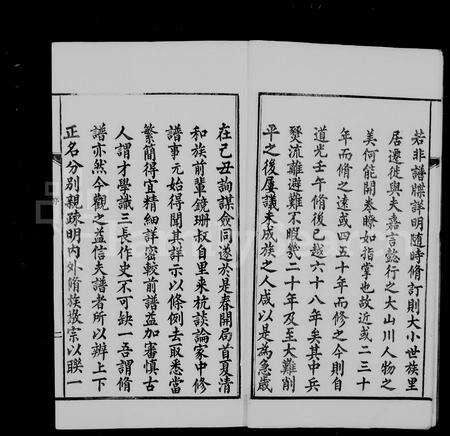 若非譜牒詳明隨時脩訂則大小世族里
居遷徙與夫嘉言懿行之大山川人物之
美何能開卷瞭如指掌也故近或二三十
年而脩之遠或四五十年而脩之今則自
道光壬午脩後已越六十八年矣其中兵
燹流離避難不暇幾二十年及至大難削
平之後屢議未成族之人咸以是為急歲
在己丑詢謀僉同遂於是春開局首夏清
和族前輩鏡珊叔自里來杭談論家中修
譜事元始得聞其詳示以條例去取悉當
繁簡得宜精細詳密較前譜益加審慎古
人謂才學識三長作史不可缺一吾謂脩
譜亦然今觀之益信夫譜者所以辨上下
正名分別親疎明內外脩族敬宗以聯一
二